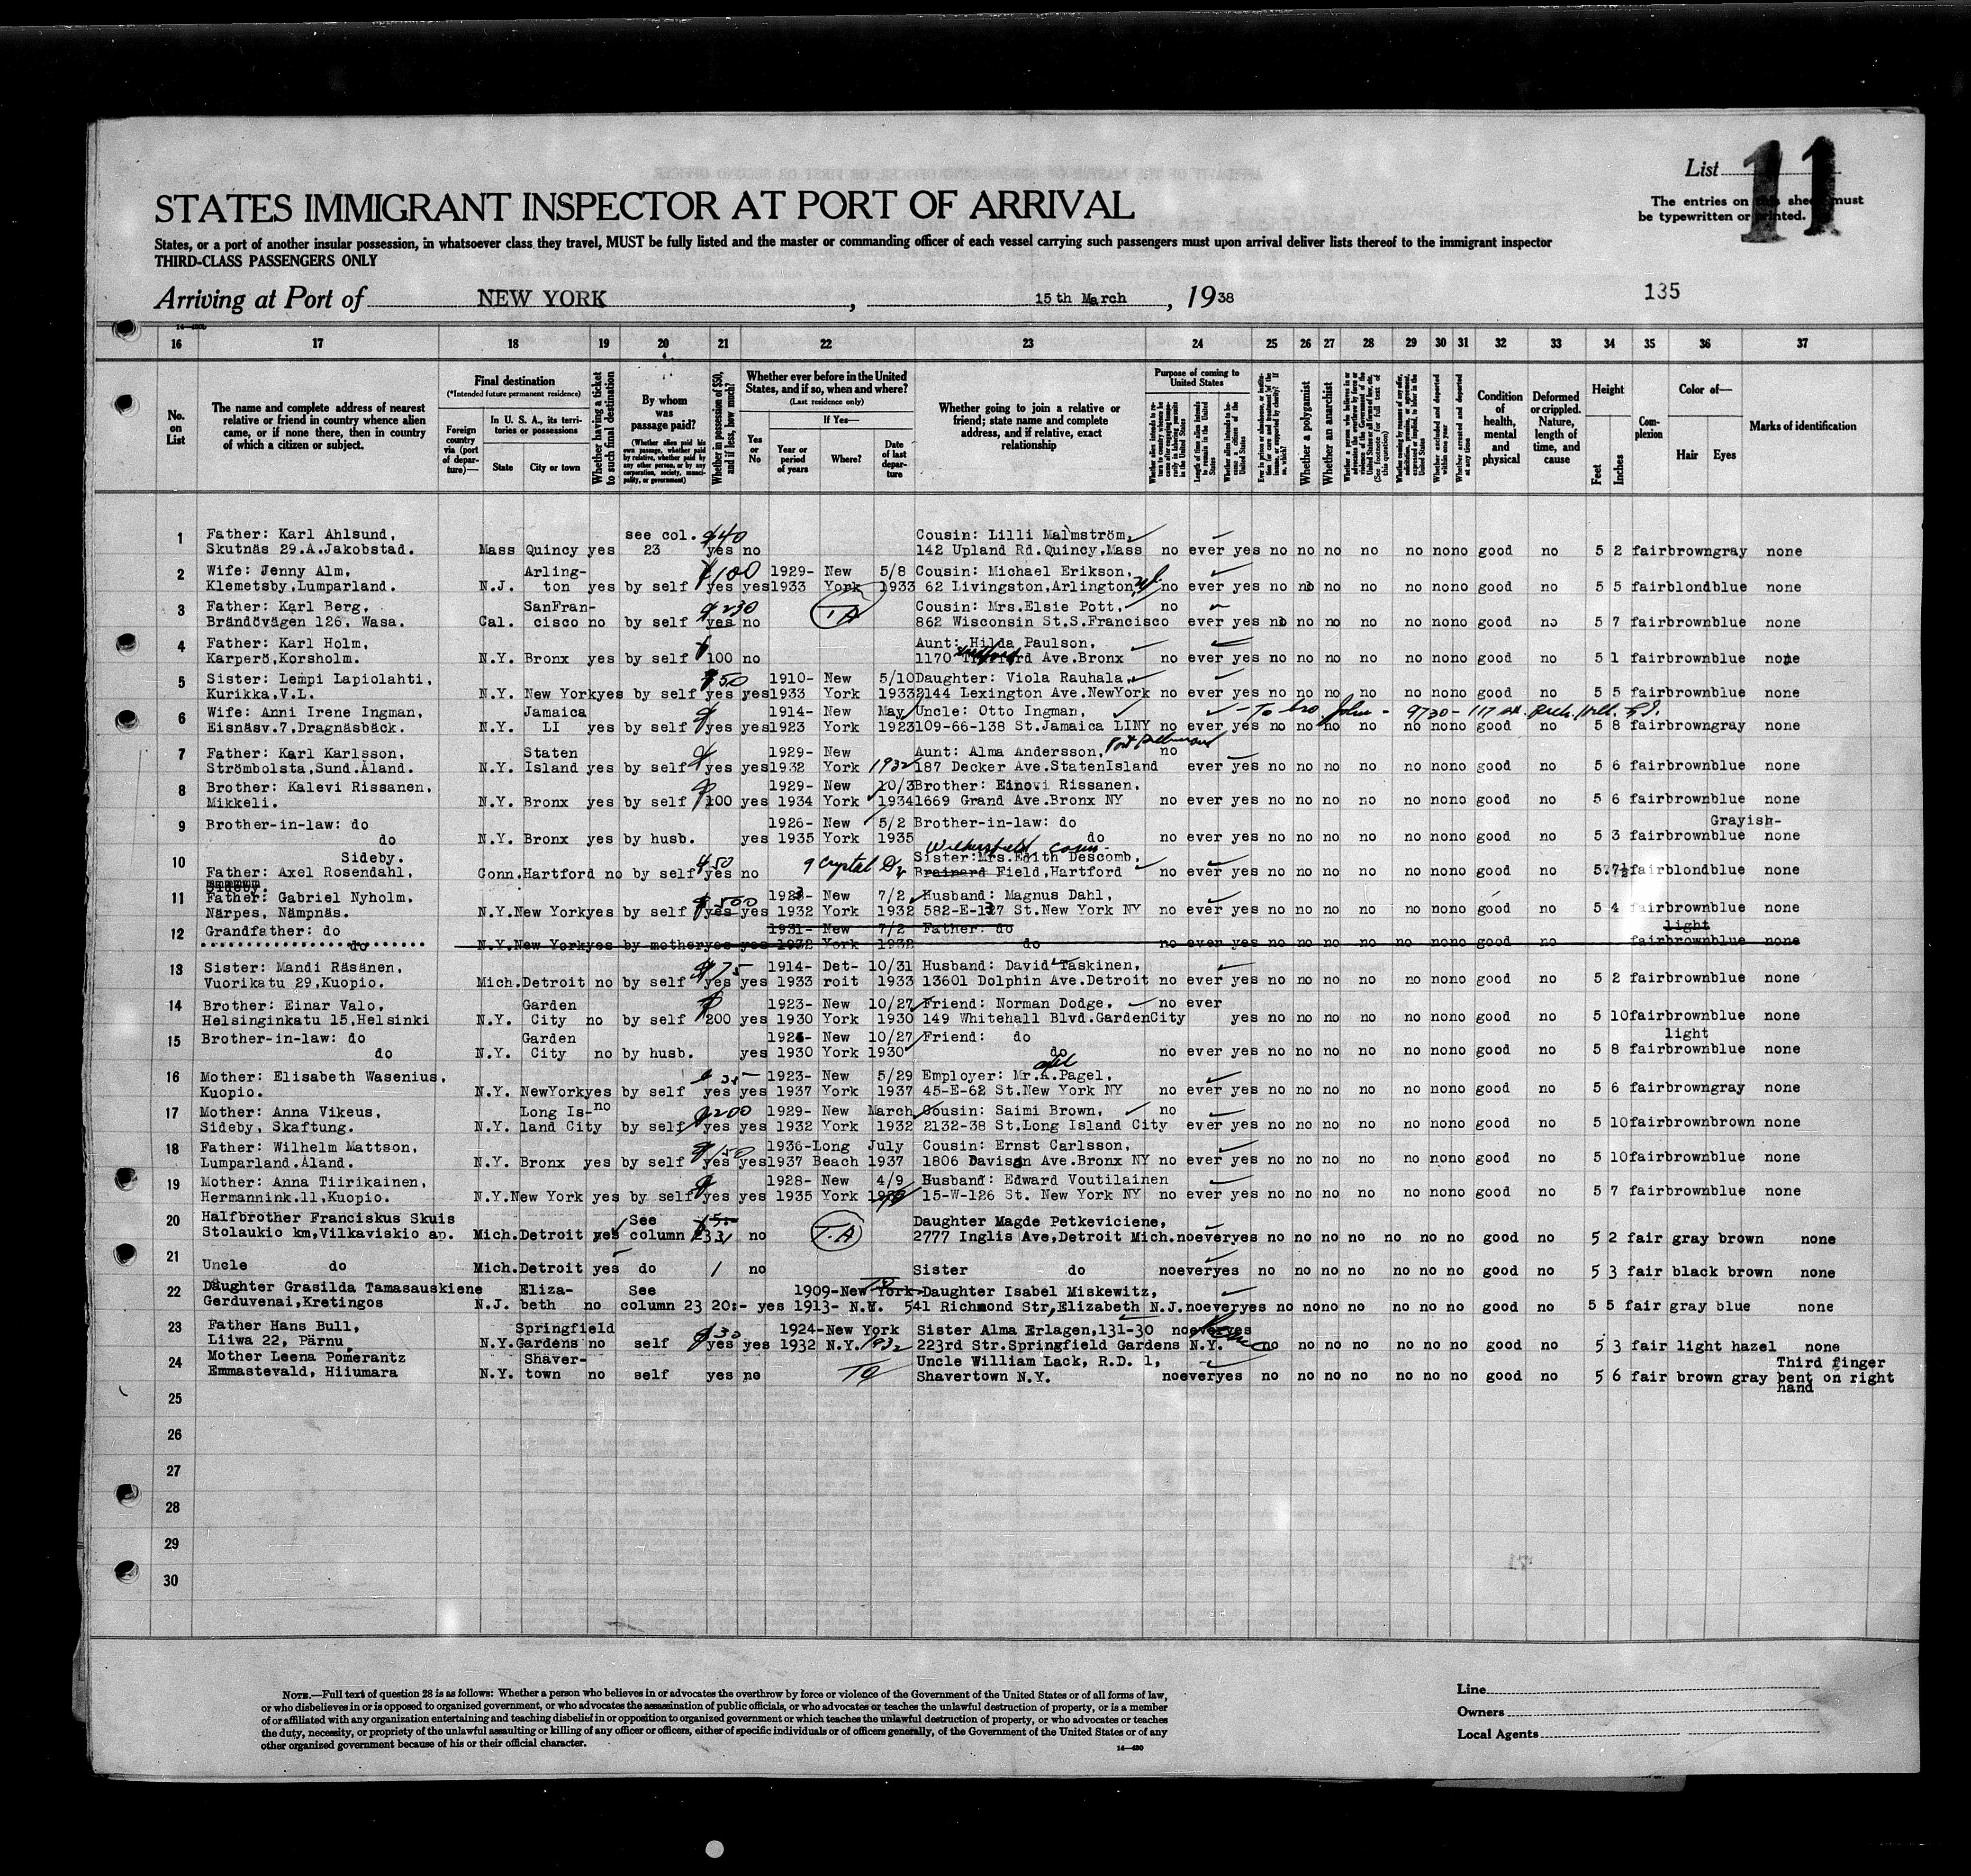 List 11
The entries on this sheet must
be typewritten or printed.
STATES IMMIGRANT INSPECTOR AT PORT OF ARRIVAL
States, or a port of another insular possession, in whatsoever class they travel, MUST be fully listed and the master or commanding officer of each vessel carrying such passengers must upon arrival deliver lists thereof to the immigrant inspector
THIRD-CLASS PASSENGERS ONLY
Arriving at Port of NEW YORK, 15th March, 1938
135
16 17 18 19 20 21 22 23 24 25 26 27 28 29 30 31 32 33 34 35 36 37
No. on List
The name and complete address of nearest relative or friend in country whence alien came, or if none there, then in country of which a citizen or subject.
Final destination
(*Intended future permanent residence)
Foreign country via (port of departure)—
In U. S. A., its territories or possessions
State City or town
Whether having a ticket to such final destination
By whom was passage paid?
(Whether alien paid his own passage, whether paid by relative, whether paid by any other person, or by any corporation, society, municipality, or government)
Whether in possession of $50, and if less, how much?
Whether ever before in the United States, and if so, when and where?
(Last residence only)
Yes or No
If Yes—
Year or period of years
Where?
Date of last departure
Whether going to join a relative or friend; state name and complete address, and if relative, exact relationship
Purpose of coming to United States
Length of time alien intends to remain in the United States
Whether alien intends to become a citizen of the United States
Whether a polygamist
Whether an anarchist
Whether excluded and deported within one year
Whether arrested and deported at any time
Condition of health, mental and physical
Deformed or crippled. Nature, length of time, and cause
Height
Feet Inches
Complexion
Color of—
Hair Eyes
Marks of identification
1 Father: Karl Ahlsund, see col. $40 Cousin: Lilli Malmström,
Skutnäs 29.A.Jakobstad. Mass Quincy yes 23 yes no 142 Upland Rd.Quincy,Mass no ever yes no no no no no no no good no 5 2 fair brown gray none
2 Wife: Jenny Alm, Arling- $100 1929- New 5/8 Cousin: Michael Erikson,
Klemetsby,Lumparland. N.J. ton yes by self yes yes 1933 York 1933 62 Livingston,Arlington no ever yes no no no no no no no good no 5 5 fair blond blue none
3 Father: Karl Berg, SanFran- $230 TA Cousin: Mrs.Elsie Pott. no
Brändövägen 126, Wasa. Cal. cisco no by self yes no 862 Wisconsin St.S.Francisco ever yes no no no no no no no good no 5 7 fair brown blue none
4 Father: Karl Holm, $ Aunt: Hilda Paulson,
Karperö,Korsholm. N.Y. Bronx yes by self 100 no 1170 Ave.Bronx no ever yes no no no no no no no good no 5 1 fair brown blue none
5 Sister: Lempi Lapiolahti, $50 1910- New 5/10 Daughter: Viola Rauhala,
Kurikka,V.L. N.Y. New York yes by self yes yes 1933 York 1933 2144 Lexington Ave.NewYork no ever yes no no no no no no no good no 5 5 fair brown blue none
6 Wife: Anni Irene Ingman, Jamaica $ 1914- New May Uncle: Otto Ingman, - To bro John - 9730-117 st. Rich. Hill. L.I.
Eisnäsv.7,Dragnäsbäck. N.Y. LI yes by self yes yes 1923 York 1923 109-66-138 St.Jamaica LINY no ever yes no no no no no no no good no 5 8 fair brown gray none
7 Father: Karl Karlsson, Staten $ 1929- New Aunt: Alma Andersson, Port Richmond no
Strömbolsta,Sund.Åland. N.Y. Island yes by self yes yes 1932 York 1932 187 Decker Ave.StatenIsland ever yes no no no no no no no good no 5 6 fair brown blue none
8 Brother: Kalevi Rissanen, $ 1929- New 10/3 Brother: Einovi Rissanen,
Mikkeli. N.Y. Bronx yes by self 100 yes 1934 York 1934 1669 Grand Ave.Bronx NY no ever yes no no no no no no no good no 5 6 fair brown blue none
9 Brother-in-law: do 1926- New 5/2 Brother-in-law: do Grayish-
do N.Y. Bronx yes by husb. yes 1935 York 1935 do no ever yes no no no no no no no good no 5 3 fair brown blue none
10 Sideby. $50 9 Crystal Sister:Mrs.Edith Descomb,
Father: Axel Rosendahl, Conn.Hartford no by self yes no Brainard Field,Hartford no ever yes no no no no no no no good no 5.7½ fair blond blue none
Sideby.
11 Father: Gabriel Nyholm. $500 1923- New 7/2 Husband: Magnus Dahl,
Närpes, Nämpnäs. N.Y.New York yes by self yes yes 1932 York 1932 582-E-137 St.New York NY no ever yes no no no no no no no good no 5 4 fair brown blue none
12 Grandfather: do 1931- New 7/2 Father: do light
do N.Y.New York yes by mother yes yes 1932 York 1932 do no ever yes no no no no no no no good no fair brown blue none
13 Sister: Mandi Räsänen, $75 1914- Det- 10/31 Husband: David Taskinen,
Vuorikatu 29,Kuopio. Mich.Detroit no by self yes yes 1933 roit 1933 13601 Dolphin Ave.Detroit no ever yes no no no no no no no good no 5 2 fair brown blue none
14 Brother: Einar Valo, Garden $ 1923- New 10/27 Friend: Norman Dodge. no ever
Helsinginkatu 15,Helsinki N.Y. City no by self 200 yes 1930 York 1930 149 Whitehall Blvd.GardenCity yes no no no no no no no good no 5 10 fair brown blue none
15 Brother-in-law: do Garden 1926- New 10/27 Friend: do light
do N.Y. City no by husb. yes 1930 York 1930 do no ever yes no no no no no no no good no 5 8 fair brown blue none
16 Mother: Elisabeth Wasenius, $35 1923- New 5/29 Employer: Mr.A.Pagel,
Kuopio. N.Y. NewYork yes by self yes yes 1937 York 1937 45-E-62 St.New York NY no ever yes no no no no no no no good no 5 6 fair brown gray none
17 Mother: Anna Vikeus, Long Is- no $200 1929- New March Cousin: Saimi Brown, no
Sideby, Skaftung. N.Y. land City by self yes yes 1932 York 1932 2132-38 St.Long Island City ever yes no no no no no no no good no 5 10 fair brown brown none
18 Father: Wilhelm Mattson, $150 1936-Long July Cousin: Ernst Carlsson,
Lumparland.Åland. N.Y. Bronx yes by self yes yes 1937 Beach 1937 1806 Davison Ave.Bronx NY no ever yes no no no no no no no good no 5 10 fair brown blue none
19 Mother: Anna Tiirikainen, $ 1928- New 4/9 Husband: Edward Voutilainen
Hermannink.11,Kuopio. N.Y.New York yes by self yes yes 1935 York 15-W-126 St. New York NY no ever yes no no no no no no no good no 5 7 fair brown blue none
20 Halfbrother Franciskus Skuis See T.A Daughter Magde Petkeviciene,
Stolaukio km,Vilkaviskio ap. Mich.Detroit yes column no 2777 Inglis Ave,Detroit Mich. no ever yes no no no no no no no good no 5 2 fair gray brown none
21 Uncle do Mich.Detroit yes do 1 no Sister do no ever yes no no no no no no no good no 5 3 fair black brown none
22 Daughter Grasilda Tamasauskiene Eliza- See 1909-New York Daughter Isabel Miskewitz,
Gerduvenai,Kretingos N.J. beth no column 23 20:- yes 1913- N.Y. 541 Richmond Str,Elizabeth N.J. no ever yes no no no no no no no good no 5 5 fair gray blue none
23 Father Hans Bull, Springfield $30 1924-New York Sister Alma Erlagen,131-30 no ever yes
Liiwa 22, Pärnu N.Y.Gardens no self yes yes 1932 N.Y. 1932 223rd Str.Springfield Gardens N.Y. no no no no no no no good no 5 3 fair light hazel none
24 Mother Leena Pomerantz Shaver- Uncle William Lack, R.D. 1, Third finger
Emmastevald, Hiiumara N.Y. town no self yes no Ta Shavertown N.Y. no ever yes no no no no no no no good no 5 6 fair brown gray bent on right
hand
25
26
27
28
29
30
NOTE.—Full text of question 28 is as follows: Whether a person who believes in or advocates the overthrow by force or violence of the Government of the United States or of all forms of law,
or who disbelieves in or is opposed to organized government, or who advocates the assassination of public officials, or who advocates or teaches the unlawful destruction of property, or is a member
of or affiliated with any organization entertaining and teaching disbelief in or opposition to organized government or which teaches the unlawful destruction of property, or who advocates or teaches
the duty, necessity, or propriety of the unlawful assaulting or killing of any officer or officers, either of specific individuals or of officers generally, of the Government of the United States or of any
other organized government because of his or their official character.
14—430
Line
Owners
Local Agents